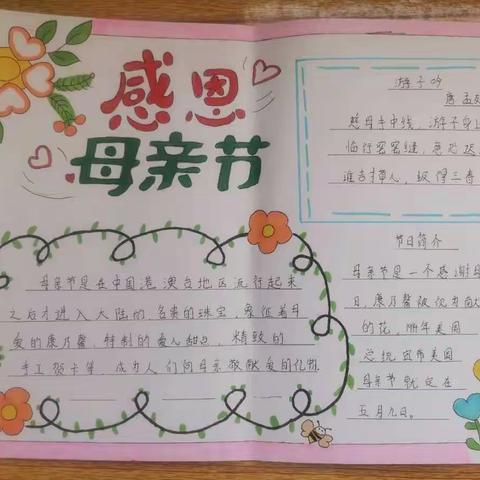 感恩
母亲节
母亲节是在中国港澳台地区流行起来
之后才进入大陆的,名贵的珠宝,象征着母
爱的康乃馨,特制的爱心甜点,精致的
手工贺卡等,成为人们向母亲敬献爱的礼物
游子吟
唐 孟
慈母手中线,游子身上
临行密密缝,意恐迟
谁言寸草心,报得三春
节日简介
母亲节是一个感谢母
日,康乃馨被视为献
的花,1914年美国
总统宣布美国
母亲节就定在
五月九日。